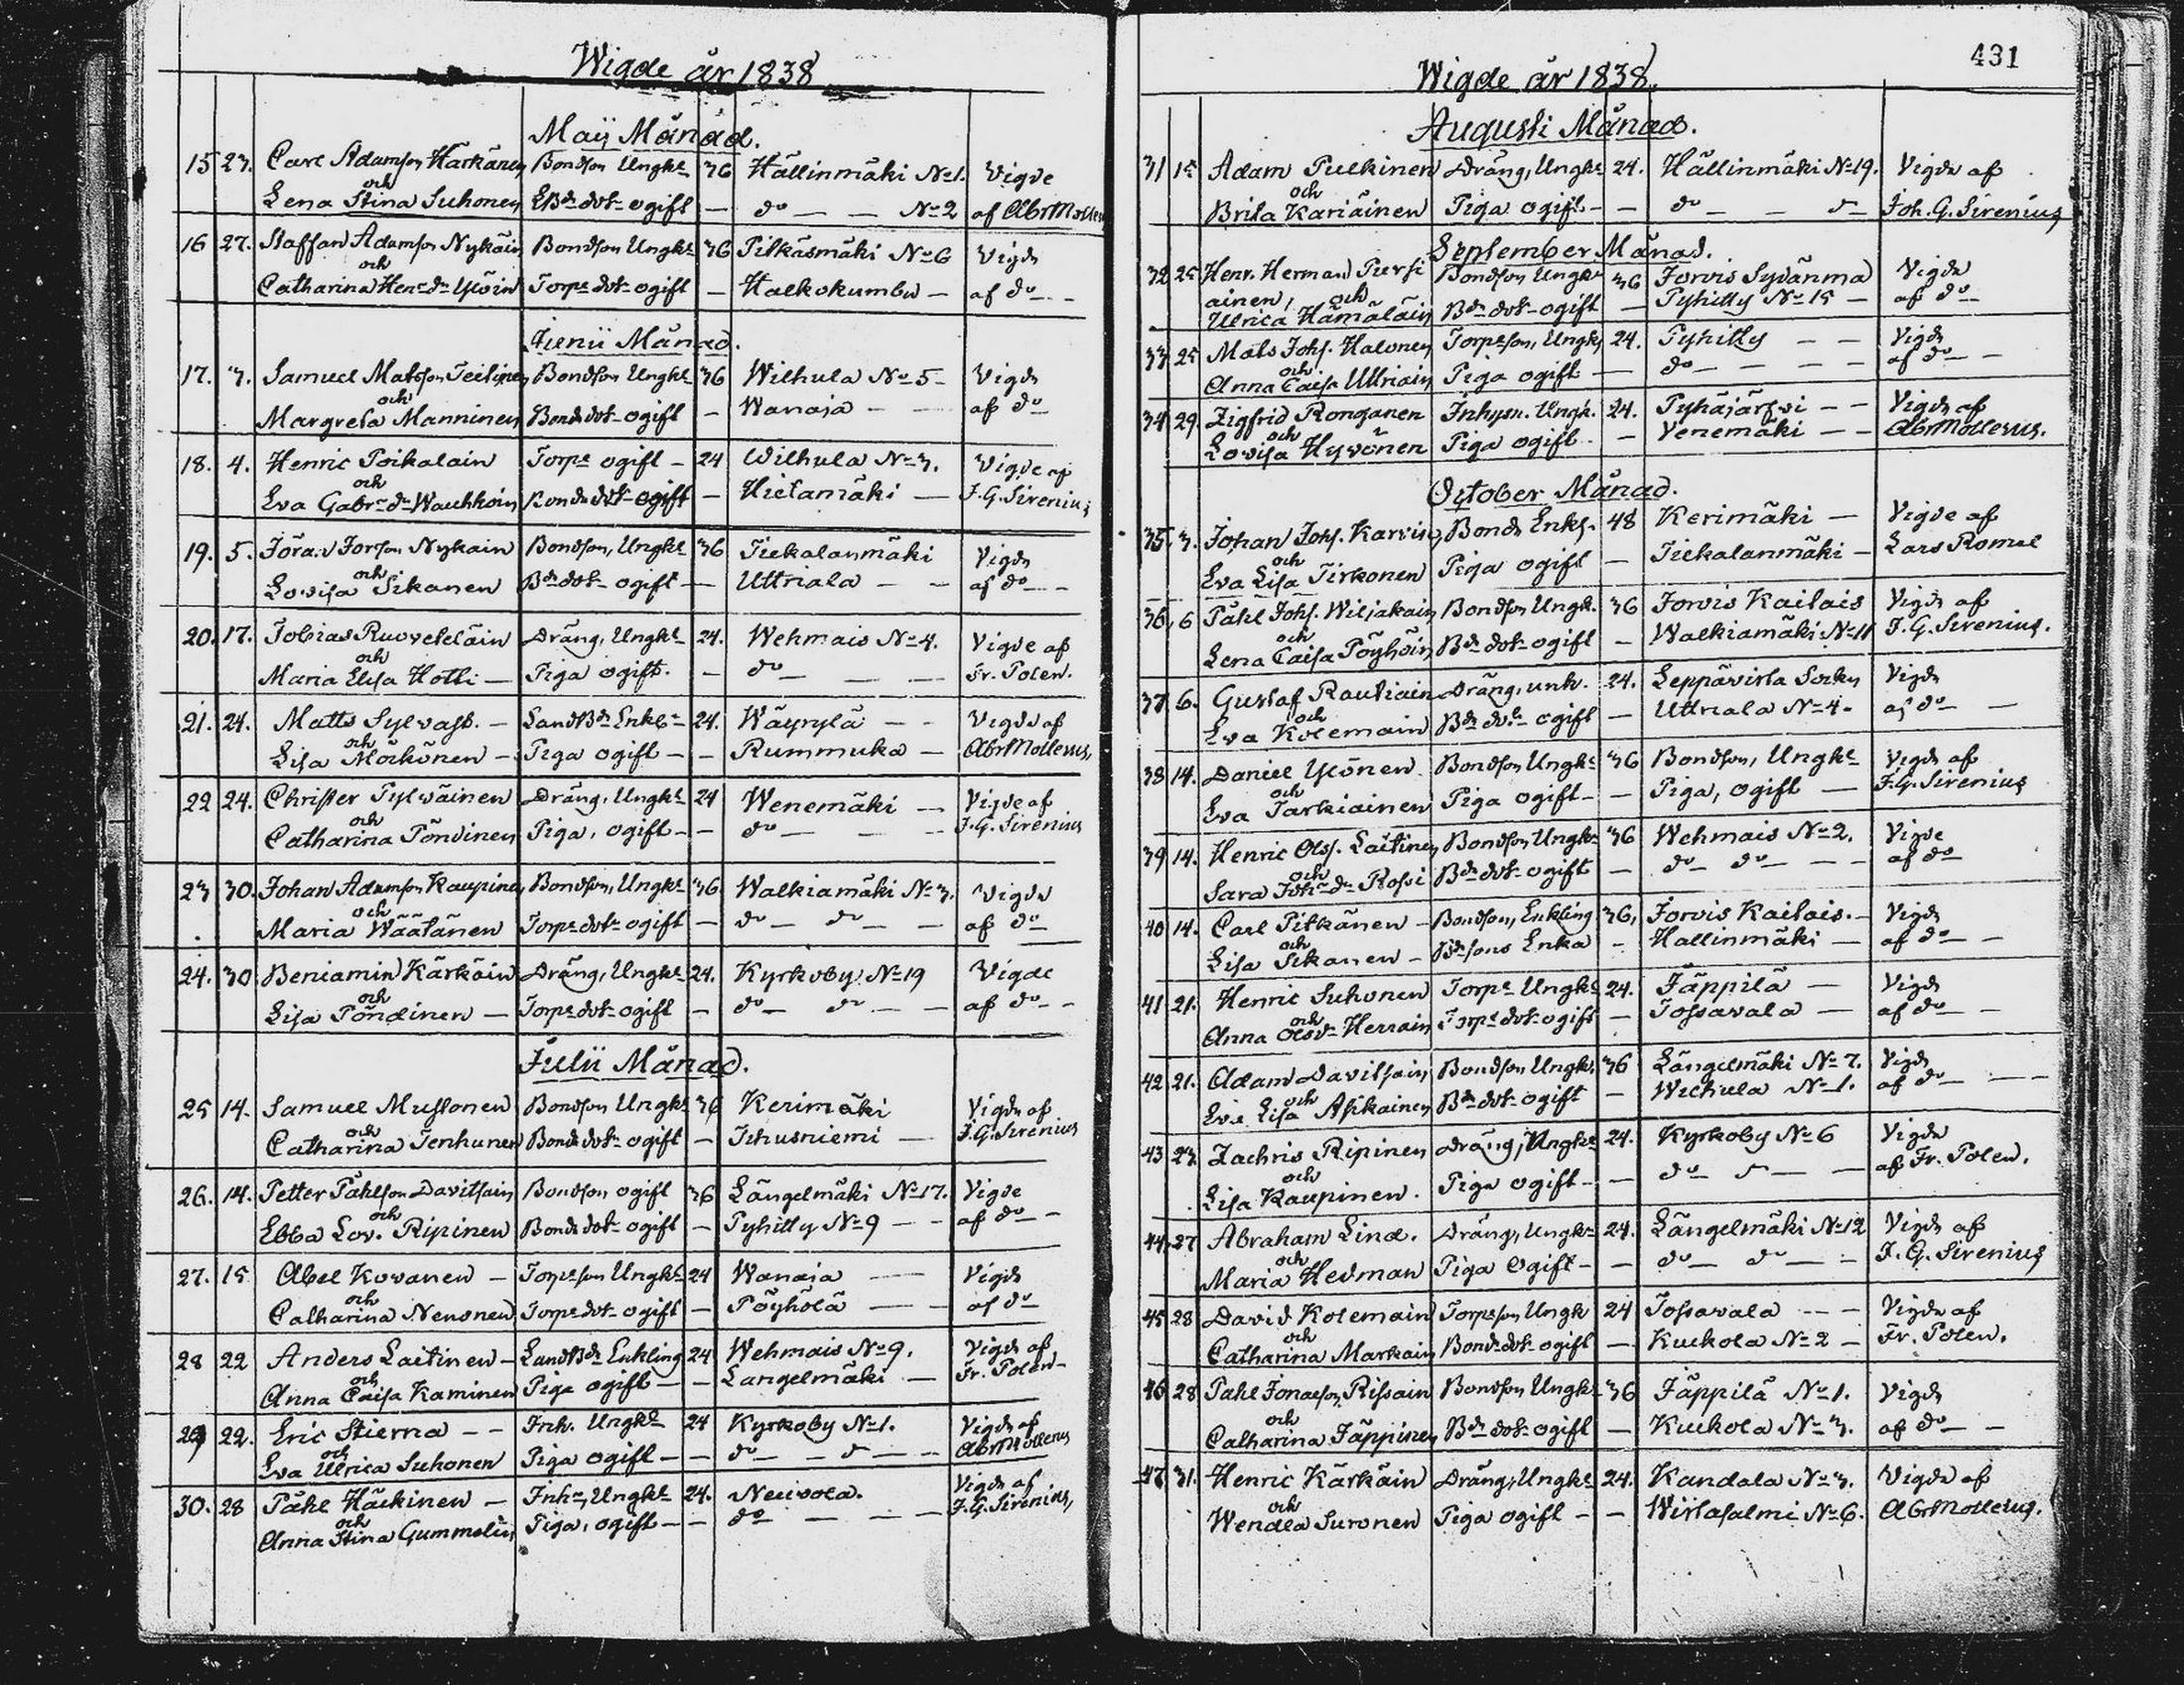 Wigde år 1838
Maij Månad.
15 27. Carl Adamson Kärkäinen Bondson Ungkl 36 Hällinmäki No 1. Vigde
och
Lena Stina Suhonen Bd dot ogift — do — — No 2 af Abr Molleus
16 27. Staffan Adamson Nykäin Bondson Ungkl 36 Pitkäsmäki No 6 Vigde
och
Catharina Henr dr Ylöin Torp dot ogift — Halkokumbu — af do —
Junii Månad.
17. 3. Samuel Matsson Teitinen Bondson Ungkl 36 Wilhula No 5 — Vigde
och
Margreta Manninen Bonde dot ogift — Wanaja — af do
18. 4. Henric Poikalain Torp ogift — 24 Wilhula No 3. Vigde af
och
Eva Gabr dr Wauhkoin Bonde dot ogift — Hietamäki — J.G. Sirenius
19. 5. Jöran Jorson Nykäin Bondson, Ungkl 36 Tiekalanmäki Vigde
och
Lovisa Sikanen Bd dot ogift — Uttriala — — af do —
20. 17. Tobias Ruoveteläin Dräng, Ungkl 24. Wehmais No 4. Vigde af
och
Maria Elisa Hotti — Piga ogift. — do — — — Fr. Polen.
21. 24. Matts Sylvast. — Landbd Enkl 24. Wäyrylä — — Vigde af
och
Lisa Mörkönen — Piga ogift — — Rummuka — Abr Mollerus,
22 24. Christer Pylväinen Dräng, Ungkl 24 Wenemäki — Vigde af
och
Catharina Pöndinen Piga, ogift — — do — — — J.G. Sirenius
23 30. Johan Adamson Kaupinen Bondson, Ungkl 36 Walkiamäki No 3. Vigde
och
Maria Wäätänen Torp dot ogift — do — do — — af do —
24. 30 Beniamin Kärkäin Dräng, Ungkl 24. Kyrkoby No 19 Vigde
och
Lisa Pöndinen — Torp dot ogift — do — do — — af do —
Julii Månad.
25 14. Samuel Mustonen Bondson Ungkl 36 Kerimäki Vigde af
och
Catharina Tenhunen Bonde dot ogift — Ichusniemi — J.G. Sirenius
26. 14. Petter Påhlson Davitsain Bondson ogift 36 Längelmäki No 17. Vigde
och
Ebba Lov. Ripinen Bonde dot ogift — Pyhitty No 9 — — af do —
27. 15 Abel Kovanen — Torpson Ungkl 24 Wanaja — Vigde
och
Catharina Nenonen Torp dot ogift — Pöyhölä — — af do
28 22 Anders Laitinen — Landbd Enkling 24 Wehmais No 9. Vigde af
och
Anna Caisa Kaminen Piga ogift — — Längelmäki — Fr. Polen —
29 22. Eric Stierna — — Inh. Ungkl 24 Kyrkoby No 1. Vigde af
och
Eva Ulrica Suhonen Piga ogift — — do — do — — Abr Mollerus
30. 28 Påhl Häckinen — Inh, Ungkl 24. Neuvola. Vigde af
och
Anna Stina Gummelin Piga, ogift — — do — — — J.G. Sirenius,
431
Wigde år 1838.
Augusti Månad.
31 15 Adam Pulkinen Dräng, Ungkl 24. Hällinmäki No 19. Vigde af
och
Brita Kariäinen Piga ogift — — do — — do — Joh. G. Sirenius
September Månad.
32 25 Henr. Herman Pursi Bondson Ungkl 36 Jorvis Sydänma Vigde
ainen, och — Pyhitty No 15 — af do —
Ulrica Hämäläin Bd dot ogift
33 25 Mats Johs. Halonen Torpson, Ungkl 24. Pyhitty — — Vigde
och
Anna Caisa Uttriain Piga ogift — do — — — af do —
34 29. Zigfrid Ronganen Inhysn. Ungk. 24. Pyhäjärfwi — — Vigde af
och
Lovisa Hyvönen Piga ogift — — Venemäki — — Abr Mollerus.
October Månad.
35. 3. Johan Johs. Karvin, Bonde Enkl. 48 Kerimäki — Vigde af
och
Eva Lisa Tirkonen Piga ogift — Tiekalanmäki — Lars Romel
36, 6 Påhl Johs. Wiljakain Bondson Ungk. 36 Jorvis Kailais Vigde af
och
Lena Caisa Pöyhöin Bd dot ogift — Walkiamäki No 11 J.G. Sirenius.
37 6. Gustaf Rautiain Dräng, unk. 24. Leppävirta Sockn Vigde
och
Eva Kolemain Bd dot ogift — Uttriala No 4 — af do —
38 14. Daniel Ylönen Bondson Ungkl 36 Bondson, Ungkl Vigde af
och
Eva Tarkiainen Piga ogift — — Piga, ogift — J.G. Sirenius
39 14. Henric Ols. Laitinen Bondson Ungkl 36 Wehmais No 2. Vigde
och
Sara Johs dr Rossi Bd dot ogift — do do — — af do
40 14. Carl Pitkänen — Bondson, Enkling 36, Jorvis Kailais. — Vigde
och
Lisa Sikanen — Bdsons Enka — Hallinmäki — af do —
41 21. Henric Suhonen Torp Ungkl 24. Jäppilä — Vigde
och
Anna Olsd Herrain Torp dot ogift — Tossavala — af do —
42 21. Adam Davitsain Bondson Ungkl. 36 Längelmäki No 7. Vigde
och
Eva Lisa Asikainen Bd dot ogift — Wilhula No 1. af do —
43 23 Zachris Ripinen Dräng, Ungkl 24. Kyrkoby No 6 Vigde
och
Lisa Kaupinen. Piga ogift — — do — do — — af Fr. Polen.
44, 27 Abraham Lind. Dräng, Ungkl 24. Längelmäki No 12 Vigde af
och
Maria Hedman Piga Ogift — — do — do — — J.G. Sirenius
45 28 David Kolemain Torpson Ungk 24 Tossavala — — Vigde af
och
Catharina Markain Bonde dot ogift — Kuckola No 2 — Fr. Polen.
46 28 Påhl Jonaeson Rissain Bondson Ungkl 36 Jäppilä No 1. Vigde
och
Catharina Jäppinen Bd dot ogift — Kuckola No 3. af do —
47 31. Henric Kärkäin Dräng, Ungkl 24. Kandala No 3. Vigde af
och
Wendla Suronen Piga ogift — — Wirtasalmi No 6. Abr Mollerus.